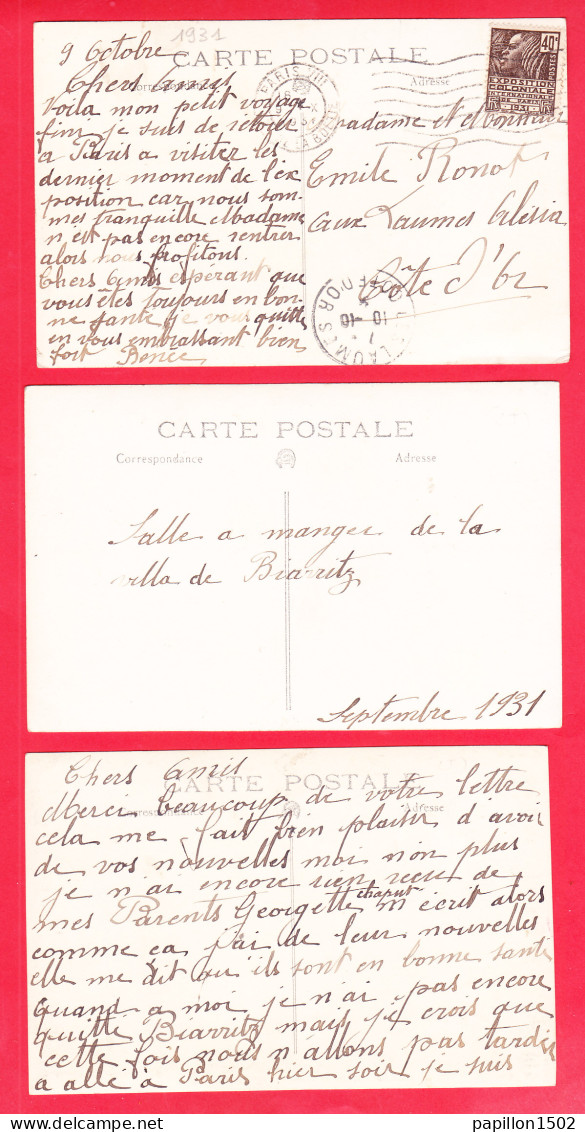 1931
9 Octobre
CARTE POSTALE
Correspondance
Adresse
40c
POSTES
EXPOSITION
COLONIALE
INTERNATIONALE
PARIS
1931
PARIS VIII
R. LA BOETIE
Chers Amis
Voila mon petit voyage
fini je suis de retour
a Paris a visiter les
dernier moment de l'ex
position car nous som-
mes tranquille Madame
n est pas encore rentrer
alors nous profitons.
Chers Amis esperant que
vous étes toujours en bon-
ne santé je vous quitte
en vous embrassant bien
fort Renée
Madame et Monsieur
Emile Ronot
aux Laumes Alésia
Côte d'Or
LES LAUMES
COTE D'OR
10-10
CARTE POSTALE
Correspondance
Adresse
Salle a manger de la
villa de Biarritz
Septembre 1931
Chers Amis
CARTE POSTALE
Correspondance
Adresse
Merci beaucoup de votre lettre
cela me fait bien plaisir d avoir
de vos nouvelles moi non plus
je n ai encore rien recu de
mes Parents Georgette chaput m écrit alors
comme ça j'ai de leur nouvelles
elle me dit qu'ils sont en bonne santé
quand a moi je n'ai pas encore
quitte Biarritz mais je crois que
cette fois nous n allons pas tarder
a allé à Paris hier soir je suis
www.delcampe.net
papillon1502